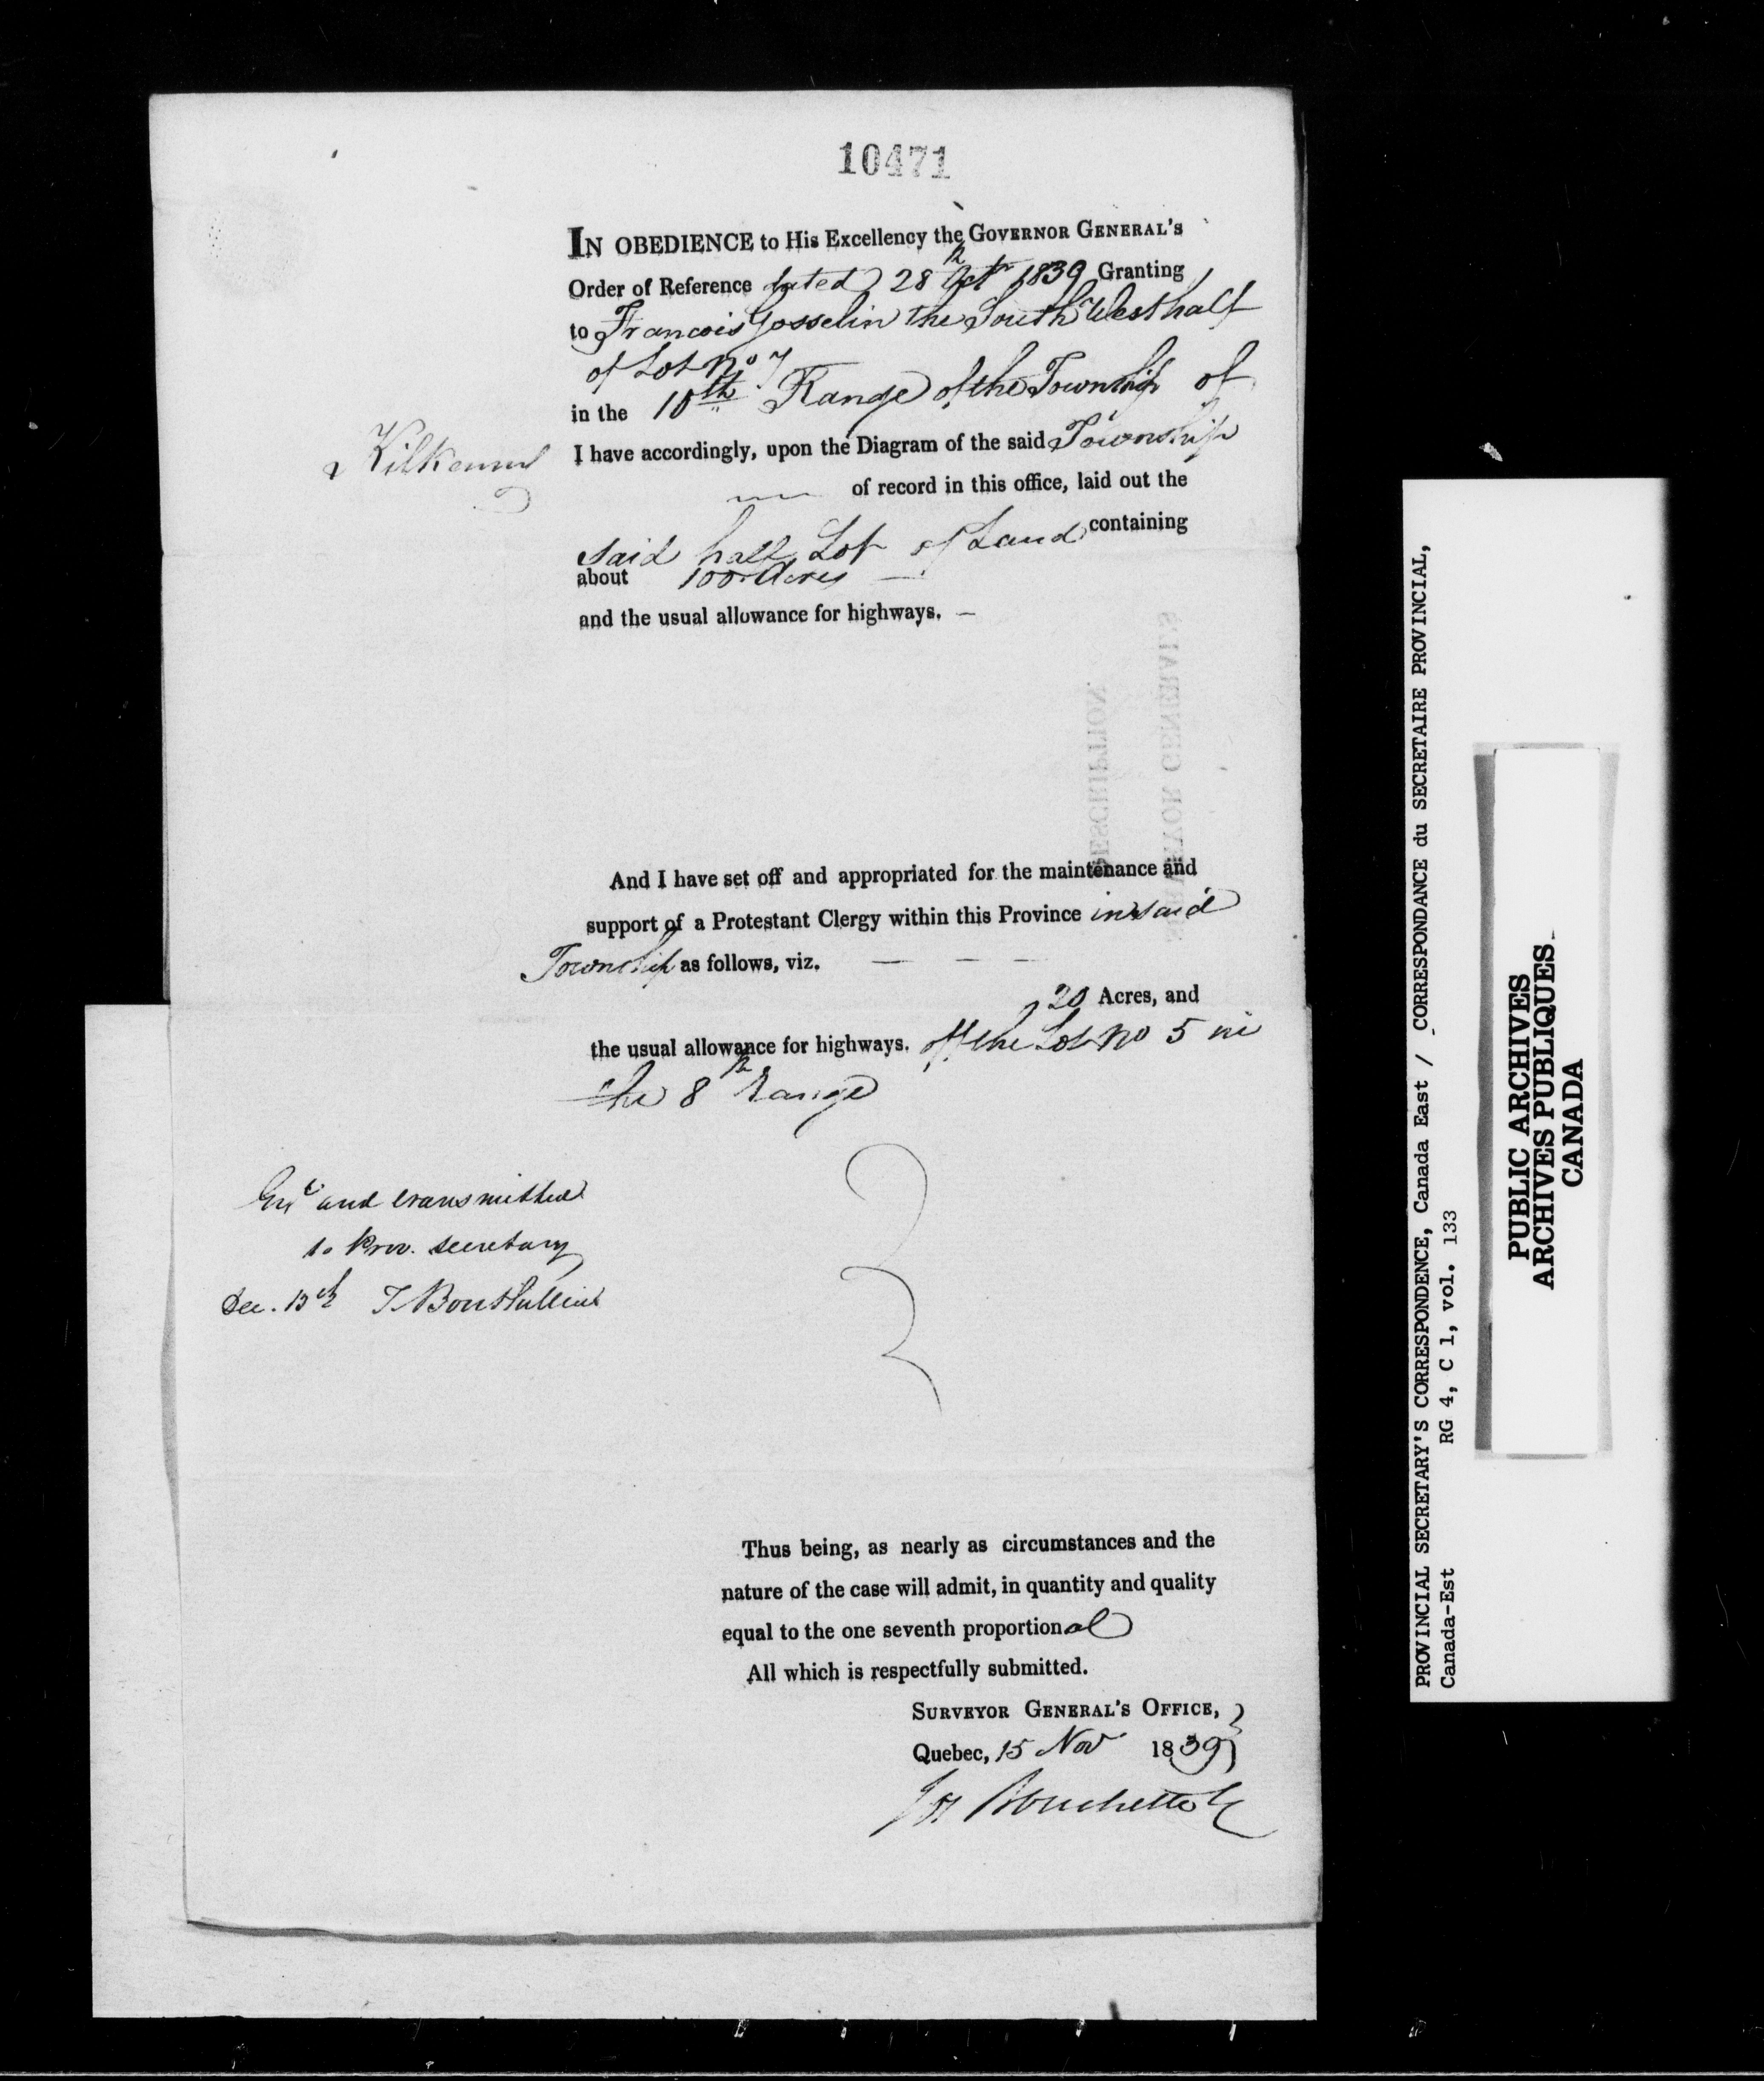 10471
IN OBEDIENCE to His Excellency the GOVERNOR GENERAL'S
Order of Reference dated 28th Oct 1839 Granting
to Francois Gosselin the South West half
of Lot No 7
in the 10th Range of the Township of
Kilkenny
I have accordingly, upon the Diagram of the said Township
of record in this office, laid out the
said half Lot of Land containing
about 100 Acres —
and the usual allowance for highways. —
DESCRIPTION.
SURVEYOR GENERAL'S
And I have set off and appropriated for the maintenance and
support of a Protestant Clergy within this Province in said
Township as follows, viz. — — —
20 Acres, and
the usual allowance for highways. off the Lot No 5 in
the 8th Range
and transmitted
to Prov. Secretary
Dec. 13th T Bouthillier
Thus being, as nearly as circumstances and the
nature of the case will admit, in quantity and quality
equal to the one seventh proportional
All which is respectfully submitted.
SURVEYOR GENERAL'S OFFICE,
Quebec, 15 Nov 1839
Jos Bouchette
PROVINCIAL SECRETARY'S CORRESPONDENCE, Canada East / CORRESPONDANCE du SECRETAIRE PROVINCIAL,
Canada-Est RG 4, C 1, vol. 133
PUBLIC ARCHIVES
ARCHIVES PUBLIQUES
CANADA